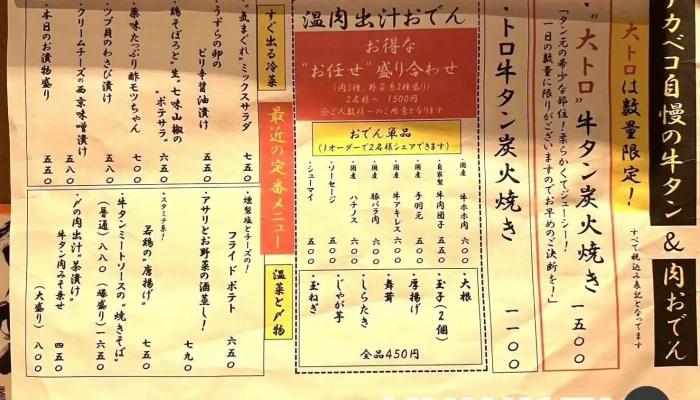 アカベコ自慢の牛タン & 肉おでん
大トロは数量限定!
すべて税込み表記となってます
・"大トロ"牛タン炭火焼き 一五〇〇
「タン元の希少な部位!柔らかくてジューシー!
一日の数量に限りがございますのでお早めのご決断を!」
・トロ牛タン炭火焼き 一一〇〇
温肉出汁おでん
お得な
"お任せ"盛り合わせ
(肉3種、野菜系2種盛り)
2名様〜 1500円
※ご人数様〜のご用意となります
おでん単品
(1オーダーで2名様シェアできます)
・国産 牛ホホ肉 六〇〇
・自家製 牛肉団子 五五〇
・国産 手羽元 五〇〇
・国産 牛アキレス 六〇〇
・国産 豚バラ肉 六〇〇
・国産 ハチノス 六〇〇
・ソーセージ 五〇〇
・シューマイ 五〇〇
・大根
・玉子(2個)
・厚揚げ
・舞茸
・しらたき
・じゃが芋
・玉ねぎ
全品450円
すぐ出る冷菜
・気まぐれ"ミックスサラダ 七五〇
・うずらの卵の
ピリ辛醤油漬け 五五〇
・鶏そぼろと"生"七味山椒の
"ポテサラ" 六五〇
・薬味たっぷり酢モツちゃん 七〇〇
・ツブ貝のわさび漬け 五五〇
・クリームチーズの西京味噌漬け 五八〇
・本日のお漬物盛り 五五〇
最近の定番メニュー
温菜と〆物
・燻製塩とチーズの!
フライドポテト 六五〇
・アサリとお野菜の酒蒸し! 七九〇
・スタミナ系!
若鶏の"唐揚げ" 七五〇
・牛タンミートソースの"焼きそば"
(普通)八八〇 (爆盛り)一六五〇
・〆の肉出汁"茶漬け"
牛タン肉みそ乗せ 四五〇
(大盛り) 八〇〇